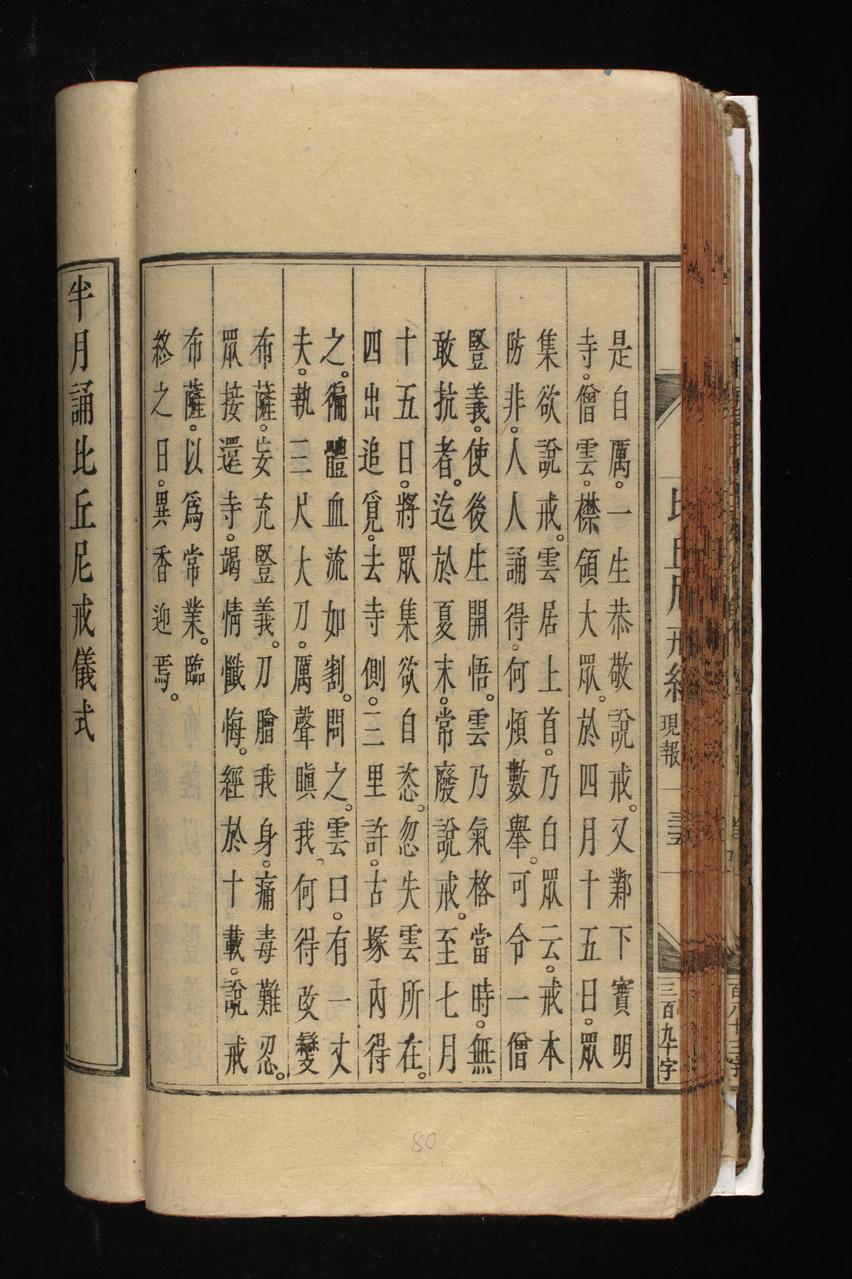 是自厲。一生恭敬說戒。又鄴下寶明
寺。僧雲。襟領大眾。於四月十五日。眾
集欲說戒。雲居上首。乃白眾云。戒本
防非。人人誦得。何煩數舉。可令一僧
豎義。使後生開悟。雲乃氣格當時。無
敢抗者。迄於夏末。常廢說戒。至七月
十五日。將眾集欲自恣。忽失雲所在。
四出追覓。去寺側。三里許。古塚內得
之。徧體血流如割。問之。雲曰。有一丈
夫。執三尺大刀。厲聲瞋我。何得改變
布薩。妄充豎義。刀膾我身。痛毒難忍。
眾接還寺。竭情懺悔。經於十載。說戒
布薩。以為常業。臨
終之日。異香迎焉。
現報
三百九十字
半月誦比丘尼戒儀式
80